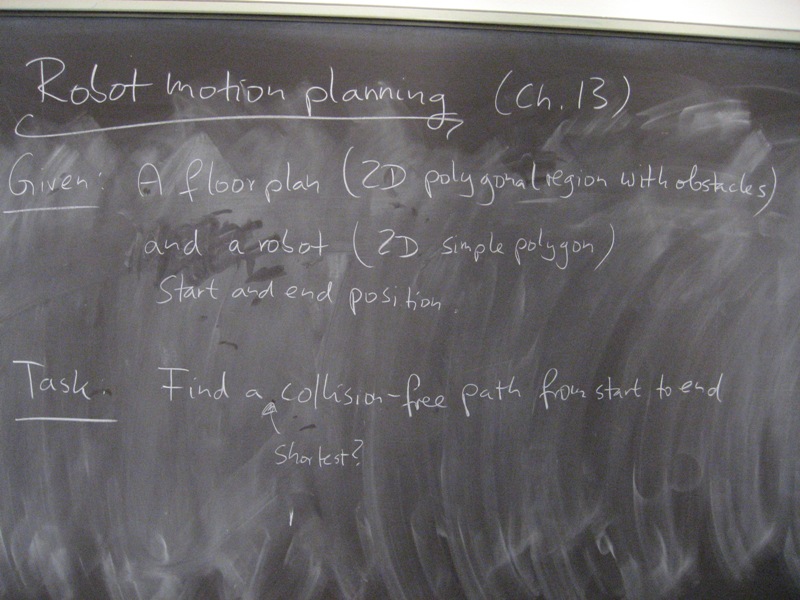 Robot motion planning (Ch. 13)
Given: A floor plan (2D polygonal region with obstacles)
and a robot (2D simple polygon)
Start and end position.
Task. Find a collision-free path from start to end
Shortest?